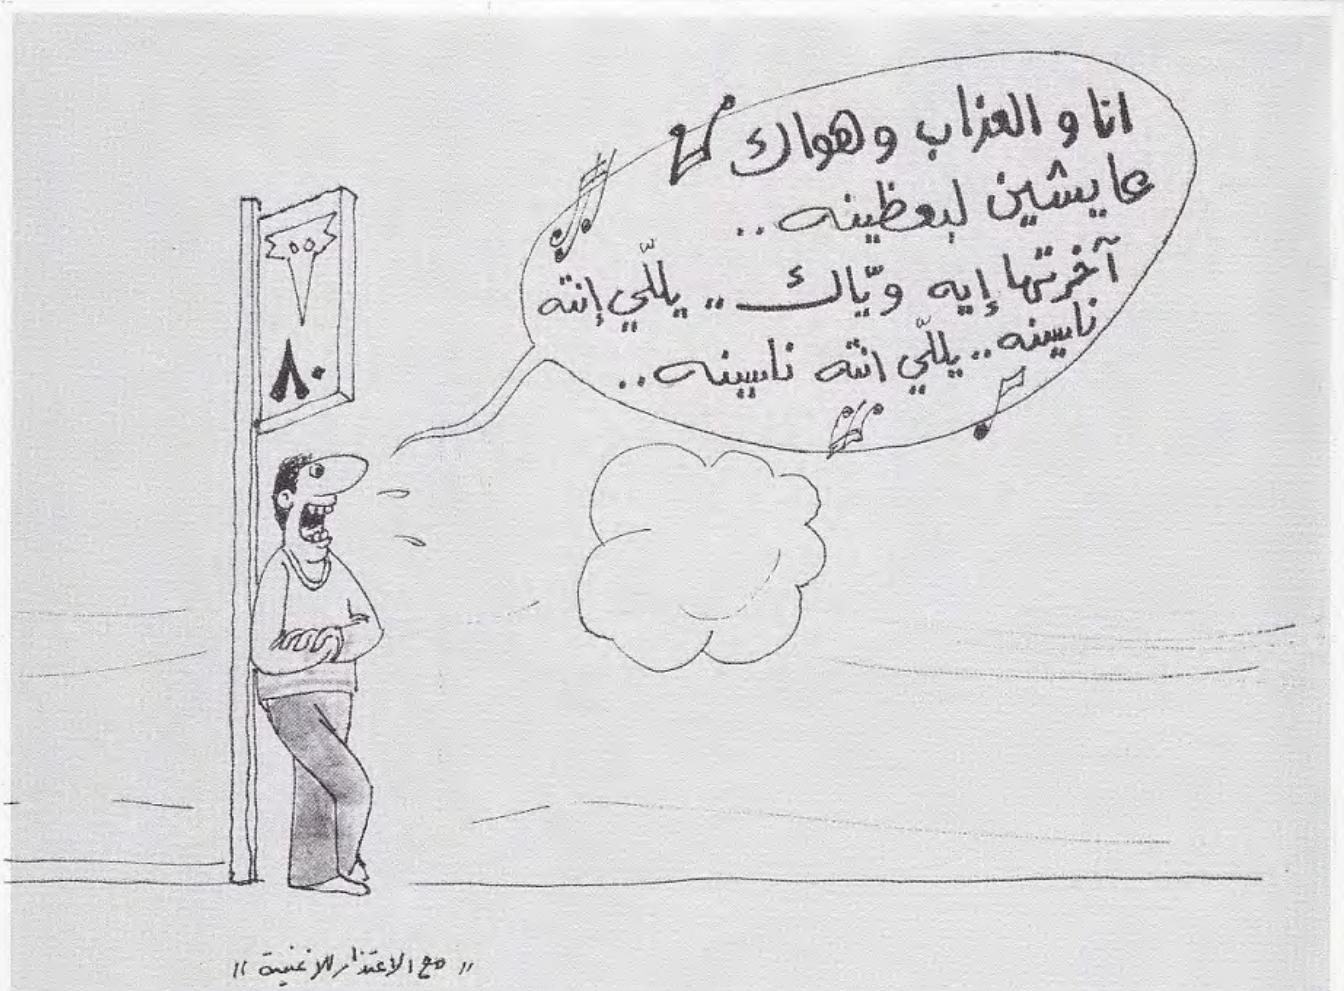 انا و العزاب وهواك
عايشين لبعظينه ..
آخرتها إيه ويّاك .. يللّي إنته
ناسينه .. يللّي انته ناسينه ..
٨٠
" مع الاعتذار للاغنية "